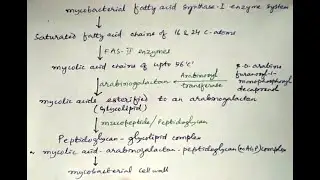 mycobacterial fatty acid synthase-I enzyme system
Saturated fatty chains of 16 & 24 C-atoms
FAS-II enzymes
mycolic acid chains of upto 56 'C'
arabinogalactan
transferase
mycolic acids esterified to an arabinogalactan
(Glycolipid)
mucopeptide/Peptidoglycan
Peptidoglycan-glycolipid complex
mycolic acid-arabinogalactan-peptidoglycan (mAP) complex
mycobacterial cell wall